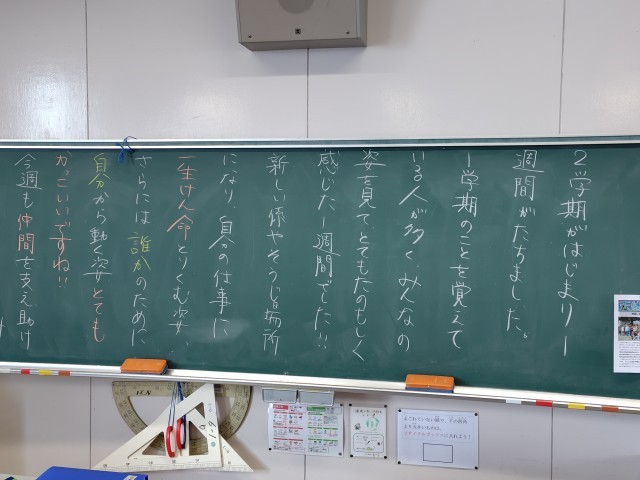 2学期がはじまり一
週間がたちました。
1学期のことを覚えて
いる人が多く、みんなの
姿を見て、とてもたのもしく
感じた1週間でした!!
新しい係やそうじ場所
になり、自分の仕事に
一生けん命とりくむ姿、
さらには誰かのために
自分から動く姿とても
かっこいいですね!!
今週も仲間を支え助け
6-1